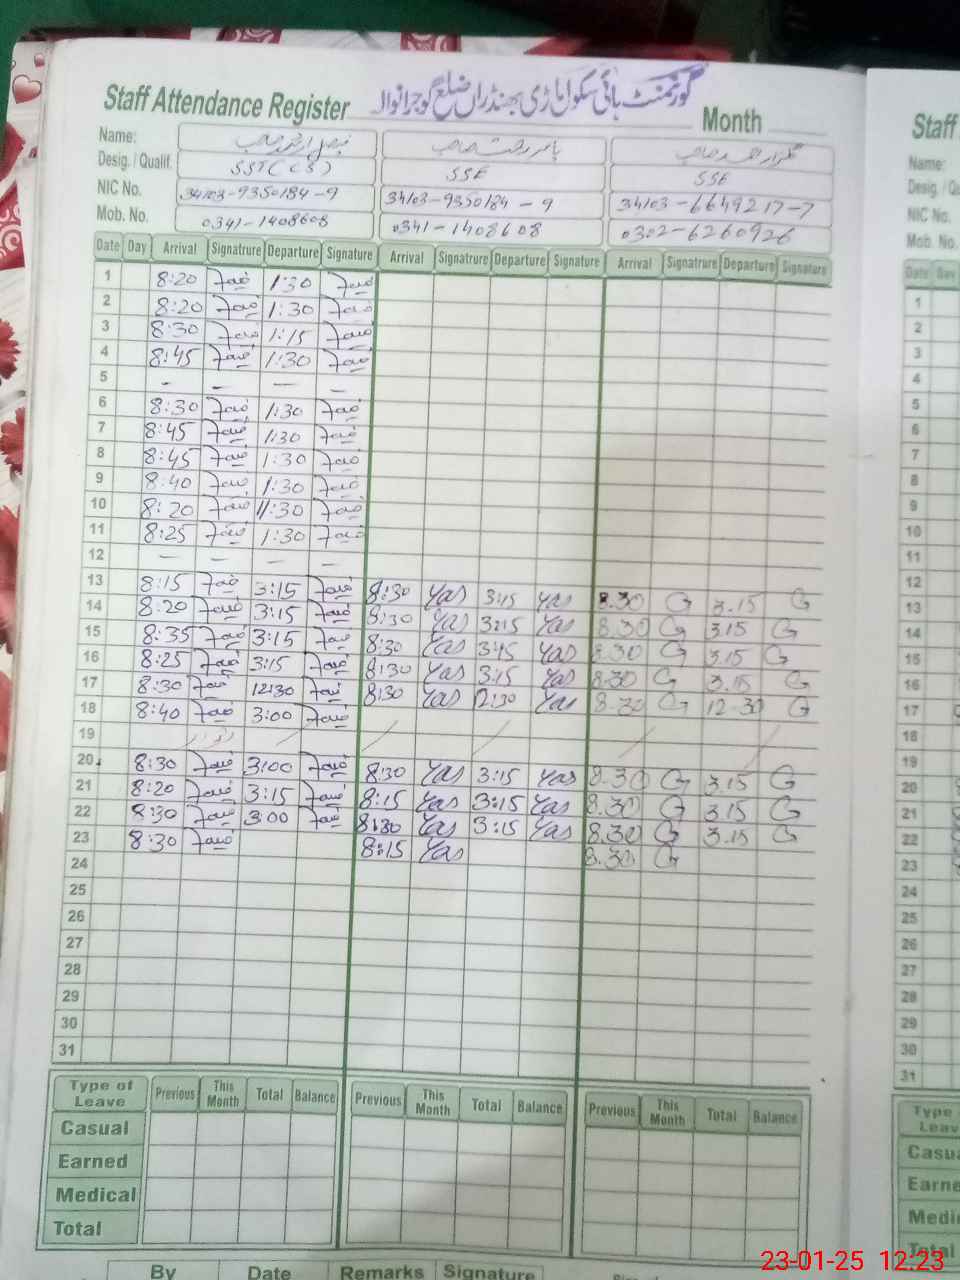 Staff Attendance Register گورنمنٹ ہائی سکول لباڑی بھنڈراں ضلع گوجرانوالہ Month
Staff
Name: صاحب یاسر صاحب گلزار احمد صاحب
Name:
Desig. / Qualif. SST (CS) SSE SSE
Desig. / Qu
NIC No. 34103-9350184-9 34103-9350184-9 34103-6649217-7
NIC No.
Mob. No. 0341-1408608 0341-1408608 0302-6260926
Mob. No.
Date Day Arrival Signatrure Departure Signature Arrival Signatrure Departure Signature Arrival Signatrure Departure Signature
Date Day
1 8:20 1:30
2 8:20 1:30
3 8:30 1:15
4 8:45 1:30
5 - - - -
6 8:30 1:30
7 8:45 1:30
8 8:45 1:30
9 8:40 1:30
10 8:20 1:30
11 8:25 1:30
12 - - - -
13 8:15 3:15 8:30 Yas 3:15 Yas 8.30 G 3.15 G
14 8:20 3:15 8:30 Yas 3:15 Yas 8.30 G 3.15 G
15 8:35 3:15 8:30 Yas 3:15 Yas 8.30 G 3.15 G
16 8:25 3:15 8:30 Yas 3:15 Yas 8.30 G 3.15 G
17 8:30 12:30 8:30 Yas 12:30 Yas 8.30 G 12.30 G
18 8:40 3:00
19 اتوار
20 8:30 3:00 8:30 Yas 3:15 Yas 8.30 G 3.15 G
21 8:20 3:15 8:15 Yas 3:15 Yas 8.30 G 3.15 G
22 8:30 3:00 8:30 Yas 3:15 Yas 8.30 G 3.15 G
23 8:30 8:15 Yas 8.30 G
24
25
26
27
28
29
30
31
1
2
3
4
5
6
7
8
9
10
11
12
13
14
15
16
17
18
19
20
21
22
23
24
25
26
27
28
29
30
31
Type of Leave Previous This Month Total Balance Previous This Month Total Balance Previous This Month Total Balance
Casual
Earned
Medical
Total
Type o
Leav
Casua
Earne
Medi
Total
By Date Remarks Signature
23-01-25 12:23